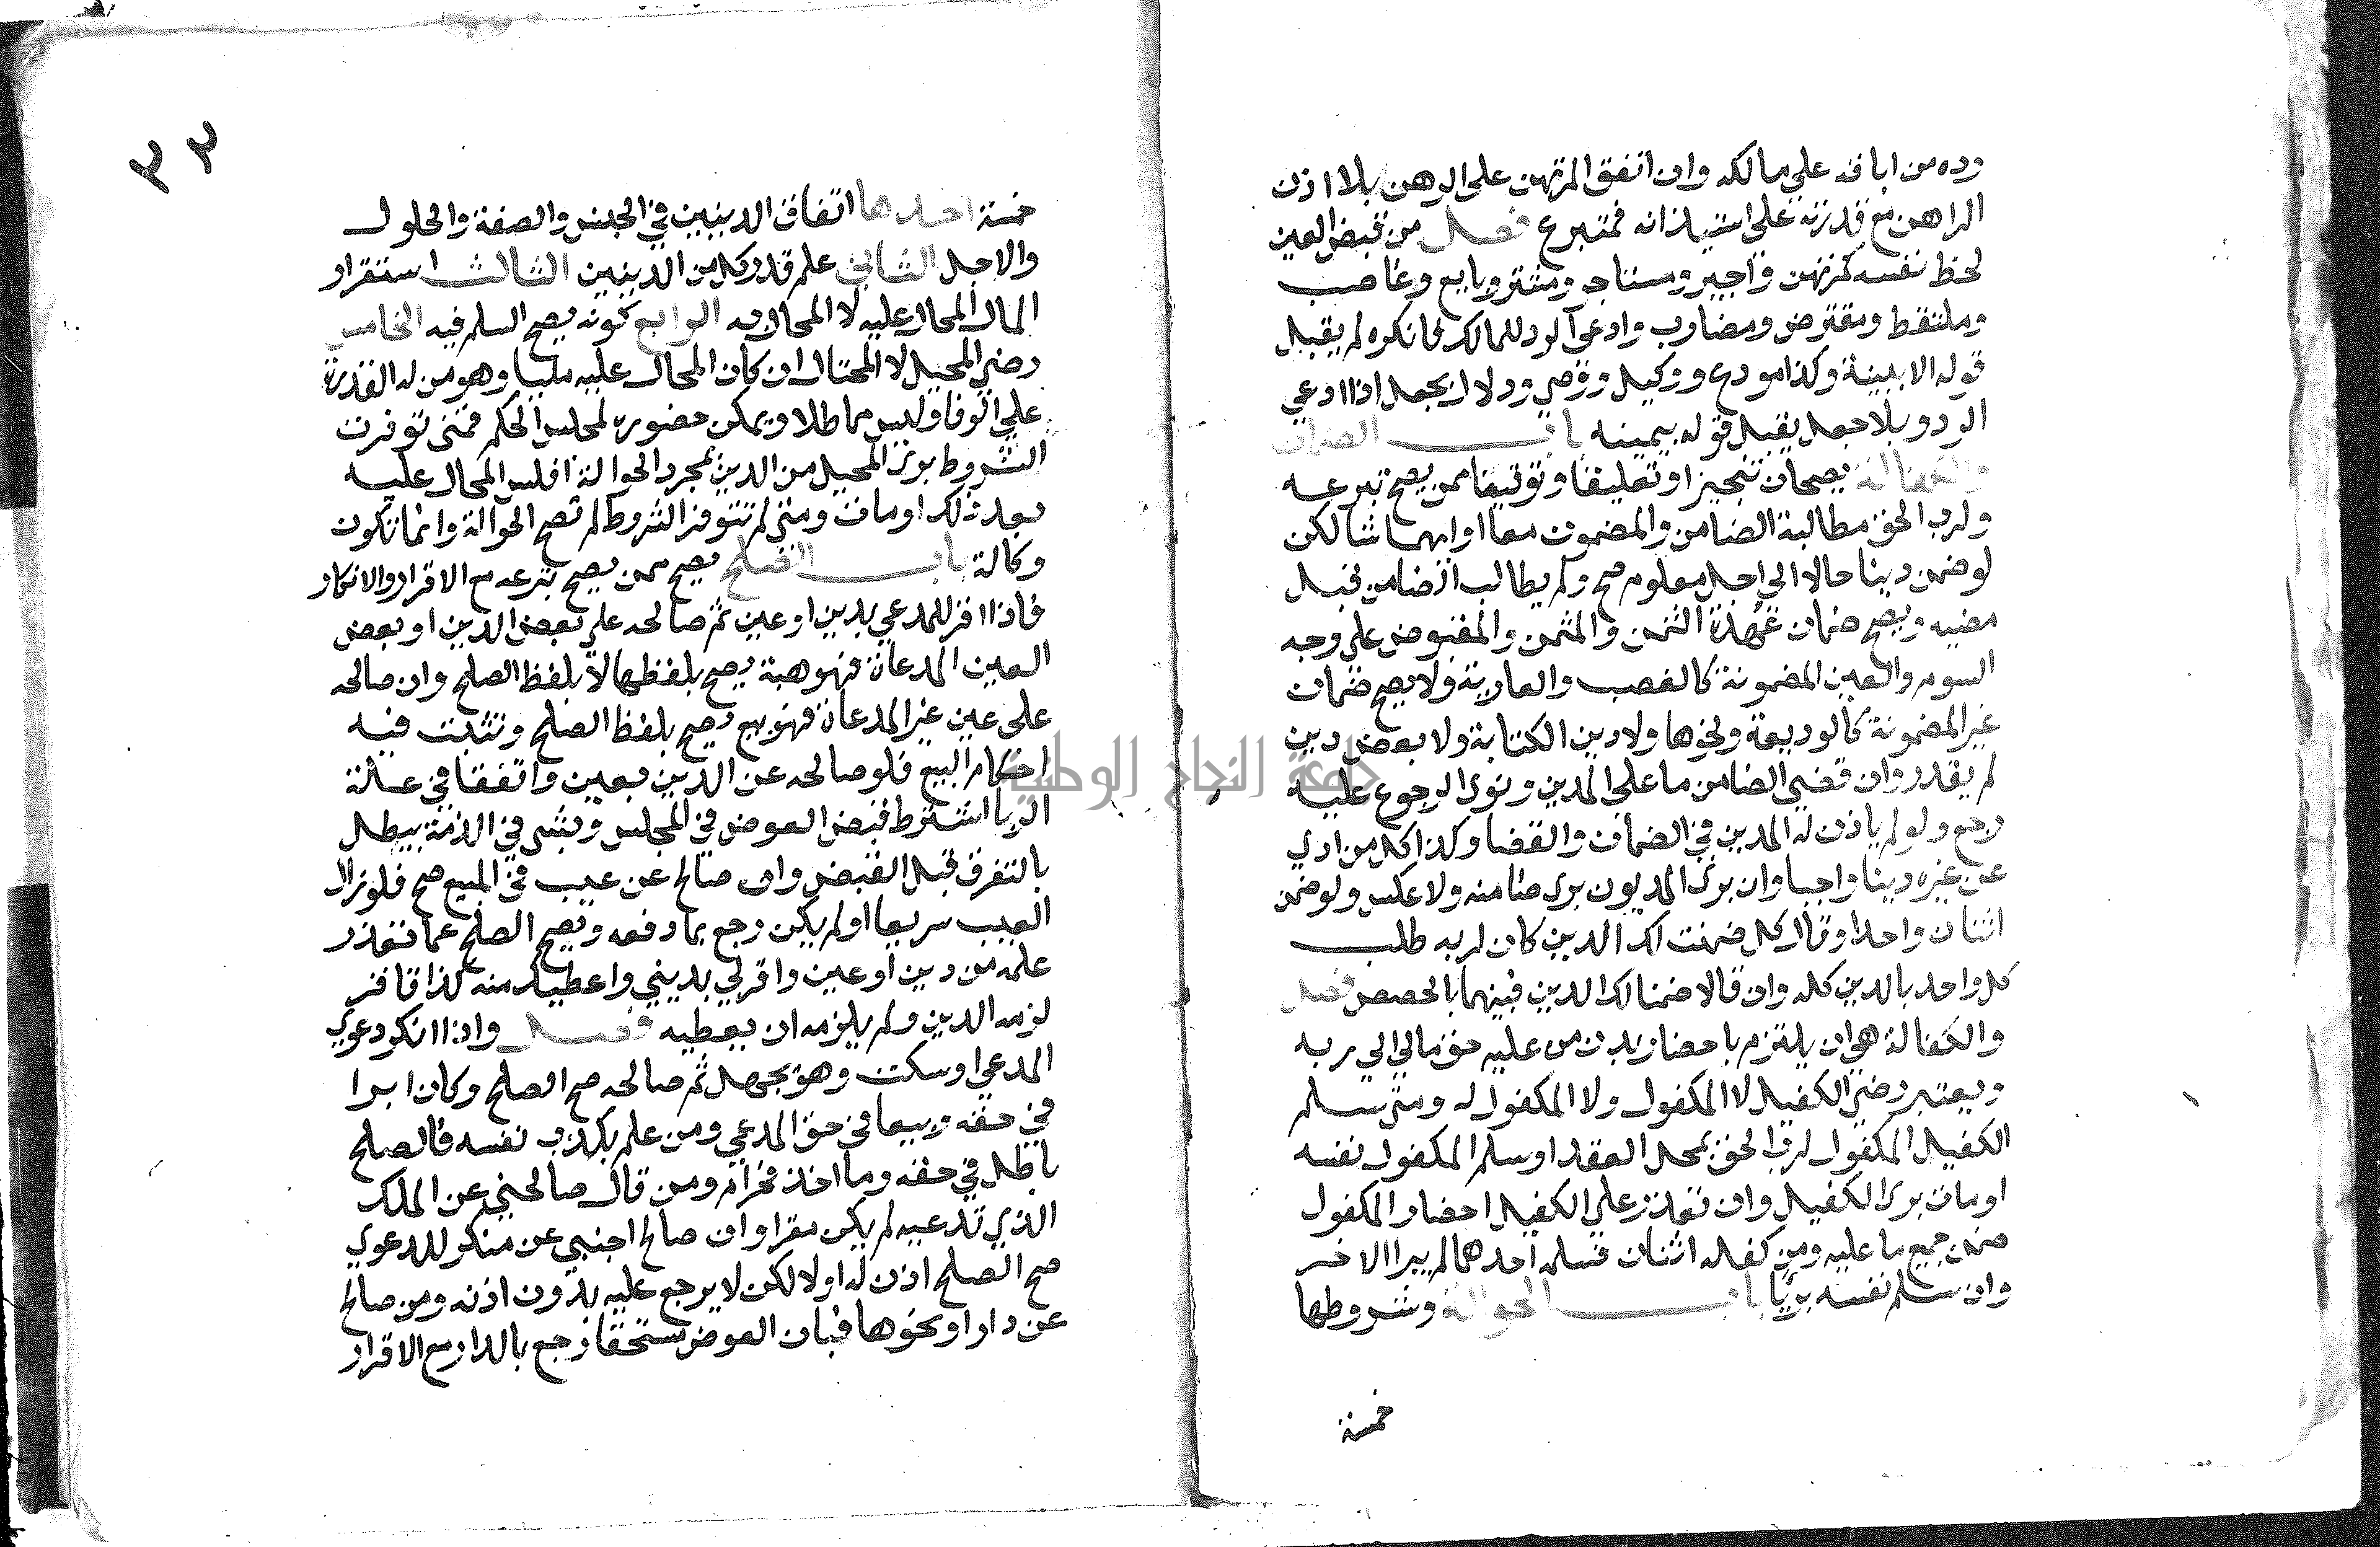 ورده من اباقه على مالكه وان انفق المرتهن على الرهن بلا اذن
الراهن مع قدرته على استيذانه فمتبرع فصل من قبض العين
لحظ نفسه كمرتهن واجير ومستاجر ومشتر وبايع وغاصب
وملتقط ومقترض ومضارب وادعى الرد للمالك فانكره لم يقبل
قوله الا ببينة وكذا مودع ووكيل ووصي ودلال بجعل اذا ادعي
الرد وبلا جعل يقبل قوله بيمينه باب الضمان
والكفالة يصحان تنجيزا وتعليقا وتوقيتا ممن يصح تبرعه
ولرب الحق مطالبة الضامن والمضمون معا او ايهما شا لكن
لو ضمن دينا حالا الي اجل معلوم صح ولم يطالب الضامن قبل
مضيه ويصح ضمان عهدة الثمن والمثمن والمقبوض على وجه
السوم والعين المضمونة كالغصب والعارية ولا يصح ضمان
غير المضمونة كالوديعة ونحوها ولا دين الكتابة ولا بعض دين
لم يقدر وان قضي الضامن ما على المدين ونوى الرجوع عليه
رجع ولو لم ياذن له المدين في الضمان والقضا وكذا كل من ادي
عن غيره دينا واجبا وان برى المديون برى ضامنه ولا عكس ولو ضمن
اثنان واحدا وقال كل ضمنت لك الدين كان لربه طلب
كل واحد بالدين كله وان قالا ضمنا لك الدين فبينهما بالحصص فصل
والكفالة هي ان يلتزم باحضار بدن من عليه حق مالي الي ربه
ويعتبر رضى الكفيل لا المكفول ولا المكفول له ومتى سلم
الكفيل المكفول لرب الحق بمحل العقد او سلم المكفول نفسه
او مات برى الكفيل وان تعذر علي الكفيل احضار المكفول
ضمن جميع ما عليه ومن كفله اثنان فسلمه احدهما لم يبرا الاخر
وان سلم نفسه بريا باب الحوالة وشروطها
خمسة
٣٣
خمسة احدها اتفاق الدينين في الجنس والصفة والحلول
والاجل الثاني علم قدر كل من الدينين الثالث استقرار
المال المحال عليه لا المحال به الرابع كونه يصح السلم فيه الخامس
رضى المحيل لا المحتال ان كان المحال عليه مليا وهو من له القدرة
علي الوفا وليس مماطلا ويمكن حضوره لمجلس الحكم فمتى توفرت
الشروط برى المحيل من الدين بمجرد الحوالة افلس المحال عليه
بعد ذلك او مات ومتى لم تتوفر الشروط لم تصح الحوالة وانما تكون
وكالة باب الصلح يصح ممن يصح تبرعه مع الاقرار والانكار
فاذا اقر للمدعي بدين او عين ثم صالحه علي بعض الدين او بعض
العين المدعاة فهو هبة يصح بلفظها لا بلفظ الصلح وان صالحه
على عين غير المدعاة فهو بيع يصح بلفظ الصلح وتثبت فيه
احكام البيع فلو صالحه عن الدين بعين واتفقا في علة
الربا اشترط قبض العوض في المجلس وبشى في الذمة يبطل
بالتفرق قبل القبض وان صالح عن عيب في المبيع صح فلو زال
العيب سريعا او لم يكن رجع بما دفعه ويصح الصلح عما تعذر
علمه من دين او عين واقر لي بديني واعطيك منه كذا فاقر
لزمه الدين ولم يلزمه ان يعطيه فصل واذا انكر دعوي
المدعي او سكت وهو يجهل ثم صالحه صح الصلح وكان ابرا
في حقه وبيعا في حق المدعي ومن علم بكذب نفسه فالصلح
باطل في حقه وما اخذ فحرام ومن قال صالحني عن الملك
الذي تدعيه لم يكن مقرا وان صالح اجنبي عن منكر للدعوي
صح الصلح اذن له اولا لكن لا يرجع عليه بدون اذنه ومن صالح
عن دار او نحوها فبان العوض مستحقا رجع بالدار مع الاقرار
جامعة النجاح الوطنية